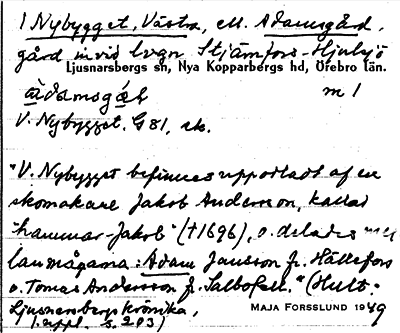 1 Nybygget, Västra, ell. Adamsgård,
gård invid lvgn Stjärnfors-Hjulsjö
Ljusnarsbergs sn, Nya Kopparbergs hd, Örebro län.
àdamsgál m 1
V. Nybygget. G 81, sk.
"V. Nybygget befinnes uppodladt af en
skomakare Jakob Andersson, kallad
"hammar-Jakob" (†1696), o. delades med
lansmågarna: Adam Jansson fr. Hällefors
o. Tomas Andersson fr. Salbohed." (Hult-
Ljusnarsbergs krönika,
1. uppl. s. 203)
MAJA FORSSLUND 1949